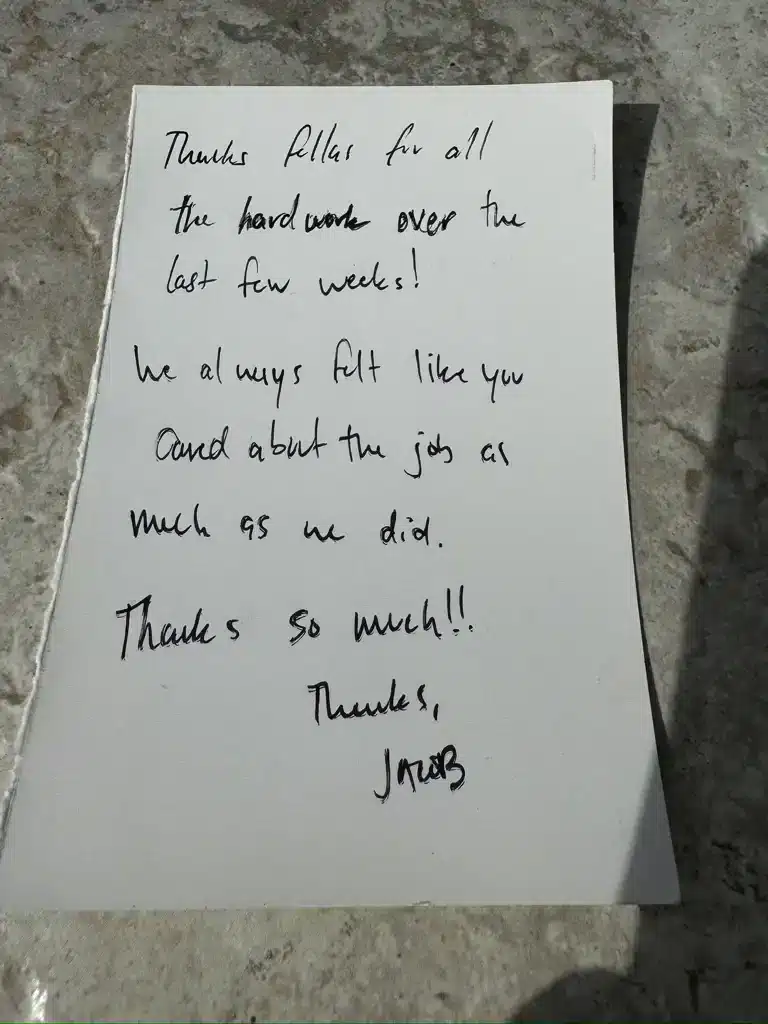 Thanks fellas for all
the hard work over the
last few weeks!
We always felt like you
Cared about the job as
much as we did.
Thanks so much!!
Thanks,
JACOB